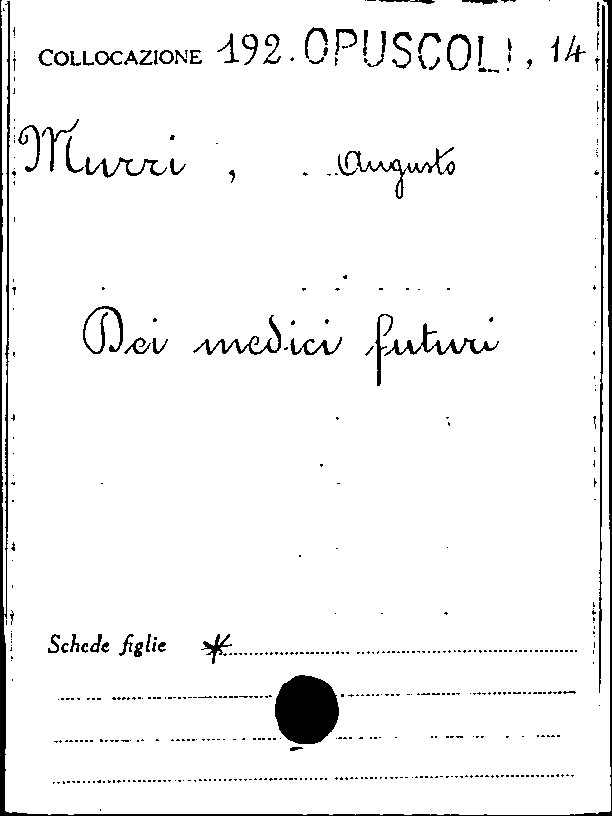 COLLOCAZIONE 192. OPUSCOLI, 14
Murri, Augusto
Dei medici futuri
Schede figlie *